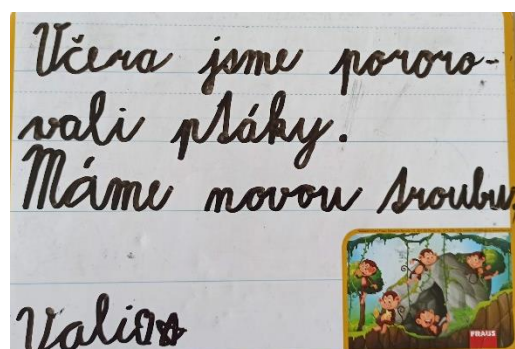 Včera jsme pozoro-
vali ptáky.
Máme novou troubu
Vali
FRAUS